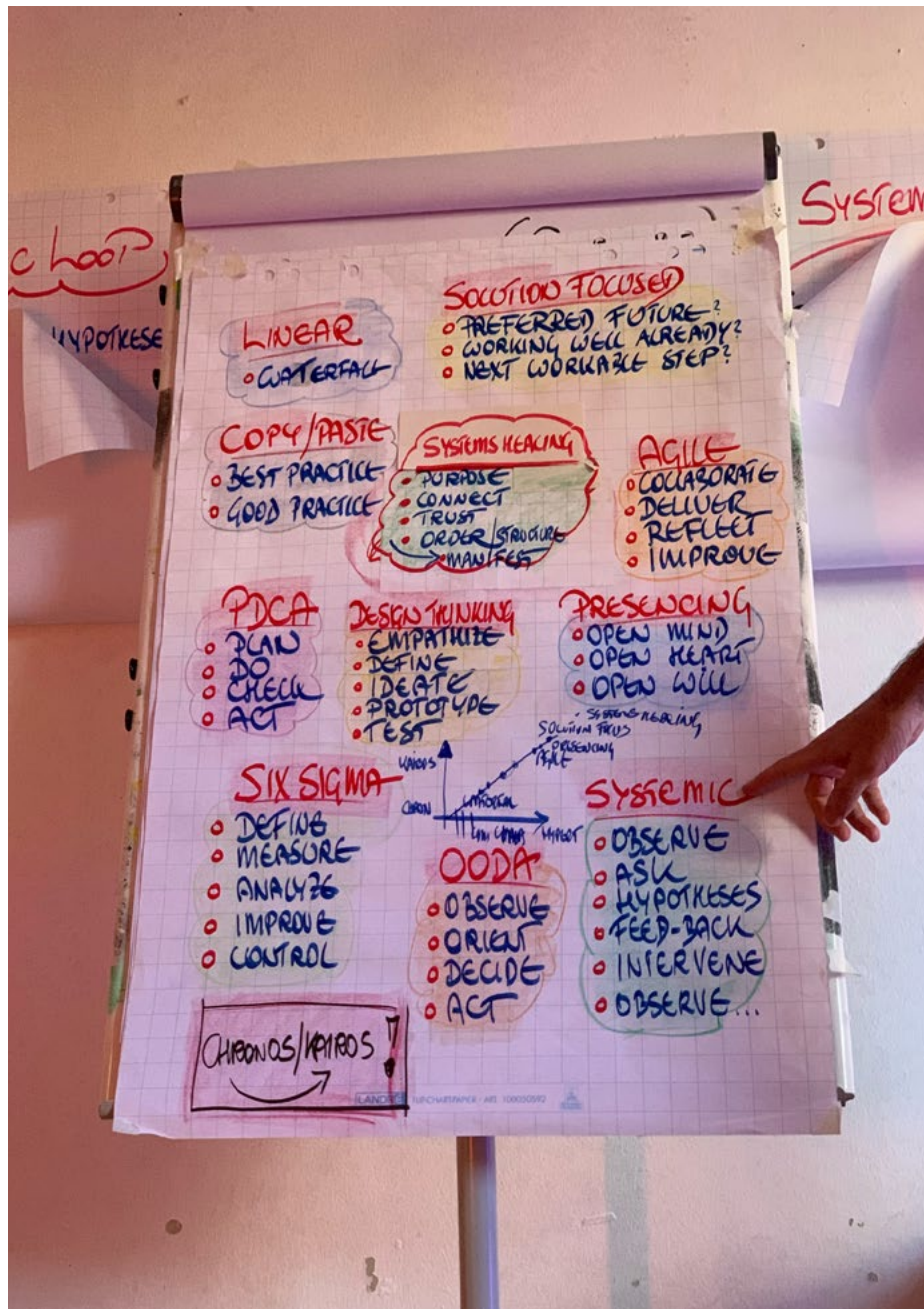 C LOOP
HYPOTHESE
SYSTEM
LINEAR
WATERFALL
SOLUTION FOCUSED
PREFERRED FUTURE?
WORKING WELL ALREADY?
NEXT WORKABLE STEP?
COPY/PASTE
BEST PRACTICE
GOOD PRACTICE
SYSTEMS HEALING
PURPOSE
CONNECT
TRUST
ORDER/STRUCTURE
MANIFEST
AGILE
COLLABORATE
DELIVER
REFLECT
IMPROVE
PDCA
PLAN
DO
CHECK
ACT
DESIGN THINKING
EMPATHIZE
DEFINE
IDEATE
PROTOTYPE
TEST
PRESENCING
OPEN MIND
OPEN HEART
OPEN WILL
SYSTEMS HEALING
SOLUTION FOCUS
PRESENCING
AGILE
KAIROS
SIX SIGMA
DEFINE
MEASURE
ANALYZE
IMPROVE
CONTROL
OODA
OBSERVE
ORIENT
DECIDE
ACT
SYSTEMIC
OBSERVE
ASK
HYPOTHESES
FEED-BACK
INTERVENE
OBSERVE...
CHRONOS/KAIROS!
FLIPCHARTPAPIER - ART. 100050592